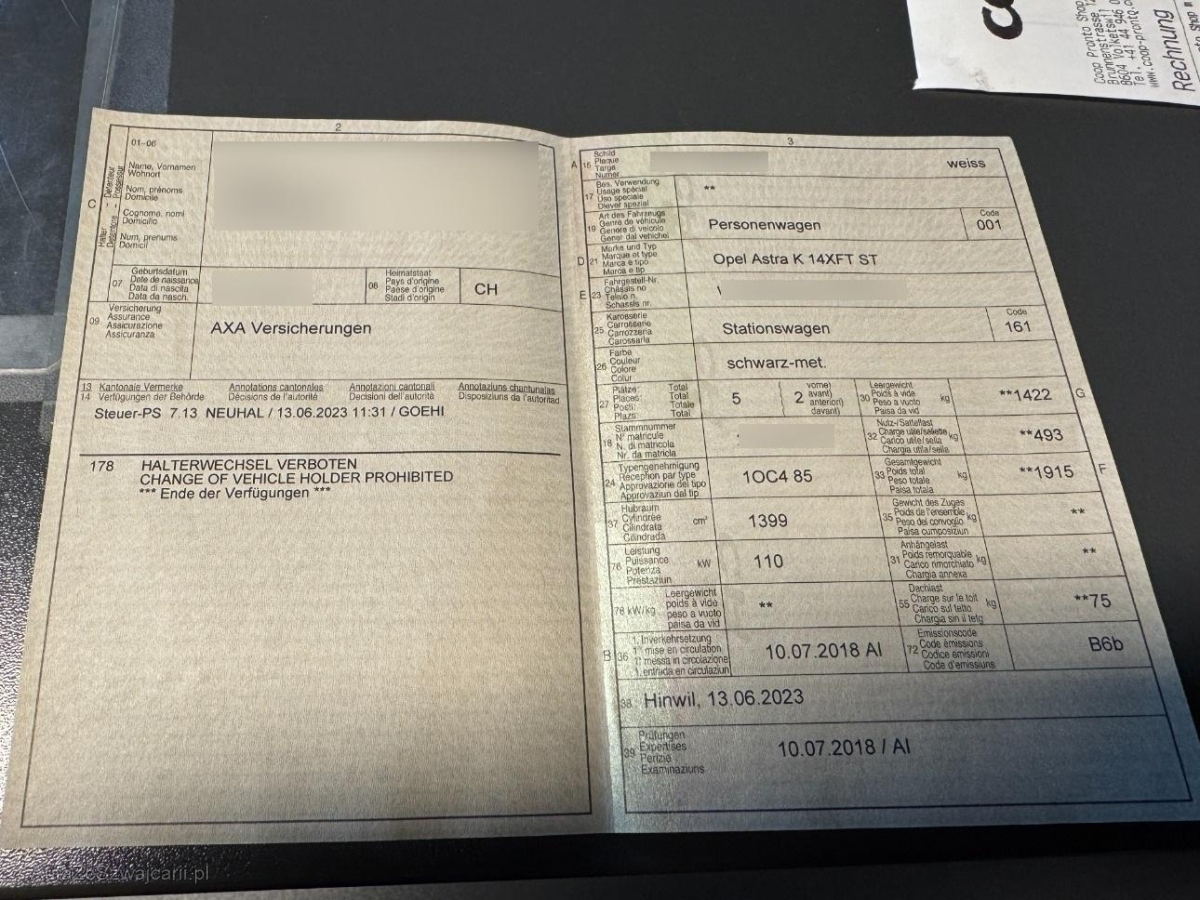 2
01-06
Name, Vornamen
Wohnort
Nom, prénoms
Domicile
Cognome, nomi
Domicilio
Num, prenums
Domicil
C
Halter
07
Geburtsdatum
Date de naissance
Data di nascita
Data da nasch.
08
Heimatstaat
Pays d'origine
Paese d'origine
Stadi d'origin
CH
09
Versicherung
Assurance
Assicurazione
Assicuranza
AXA Versicherungen
13 Kantonale Vermerke
14 Verfügungen der Behörde
Annotations cantonales
Décisions de l'autorité
Annotazioni cantonali
Decisioni dell'autorità
Annotaziuns chantunalas
Disposiziuns da l'autoritad
Steuer-PS 7.13 NEUHAL / 13.06.2023 11:31 / GOEHI
178 HALTERWECHSEL VERBOTEN
CHANGE OF VEHICLE HOLDER PROHIBITED
*** Ende der Verfügungen ***
3
A
Schild
Plaque
Targa
Numer
weiss
17
Bes. Verwendung
Usage spécial
Uso speciale
Diever spezial
**
19
Art des Fahrzeugs
Genre de véhicule
Genere di veicolo
Gener dal vehichel
Personenwagen
Code
001
D 21
Marke und Typ
Marque et type
Marca e tipo
Marca e tip
Opel Astra K 14XFT ST
E 23
Fahrgestell-Nr.
Châssis no
Telaio n.
Schassis nr.
25
Karosserie
Carrosserie
Carrozzeria
Carossaria
Stationswagen
Code
161
26
Farbe
Couleur
Colore
Colur
schwarz-met.
27
Plätze: Total
Places: Total
Posti: Totale
Plazs: Total
5
2
vorne)
avant)
anteriori)
davant)
30
Leergewicht
Poids à vide
Peso a vuoto
Paisa da vid
kg
**1422
G
18
Stammnummer
N° matricule
N. di matricola
Nr. da matricla
32
Nutz-/Sattellast
Charge utile/sellette
Carico utile/sella
Chargia utila/sella
kg
**493
24
Typengenehmigung
Réception par type
Approvazione del tipo
Approvaziun dal tip
1OC4 85
33
Gesamtgewicht
Poids total
Peso totale
Paisa totala
kg
**1915
F
37
Hubraum
Cylindrée
Cilindrata
Cilindrada
cm³
1399
35
Gewicht des Zuges
Poids de l'ensemble
Peso del convoglio
Paisa cumposiziun
kg
**
76
Leistung
Puissance
Potenza
Prestaziun
kW
110
31
Anhängelast
Poids remorquable
Carico rimorchiato
Chargia annexa
kg
**
78 kW/kg
Leergewicht
poids à vide
peso a vuoto
paisa da vid
**
55
Dachlast
Charge sur le toit
Carico sul tetto
Chargia sin il tetg
kg
**75
B 36
1. Inverkehrsetzung
1re mise en circulation
1a messa in circolazione
1. entrada en circulaziun
10.07.2018 AI
72
Emissionscode
Code émissions
Codice emissioni
Code d'emissiuns
B6b
38 Hinwil, 13.06.2023
39
Prüfungen
Expertises
Perizie
Examinaziuns
10.07.2018 / AI
Coop Pronto Shop
Brunnenstrasse
8604 Volketswil
Tel. +41 44 946
www.coop-pronto.
Rechnung